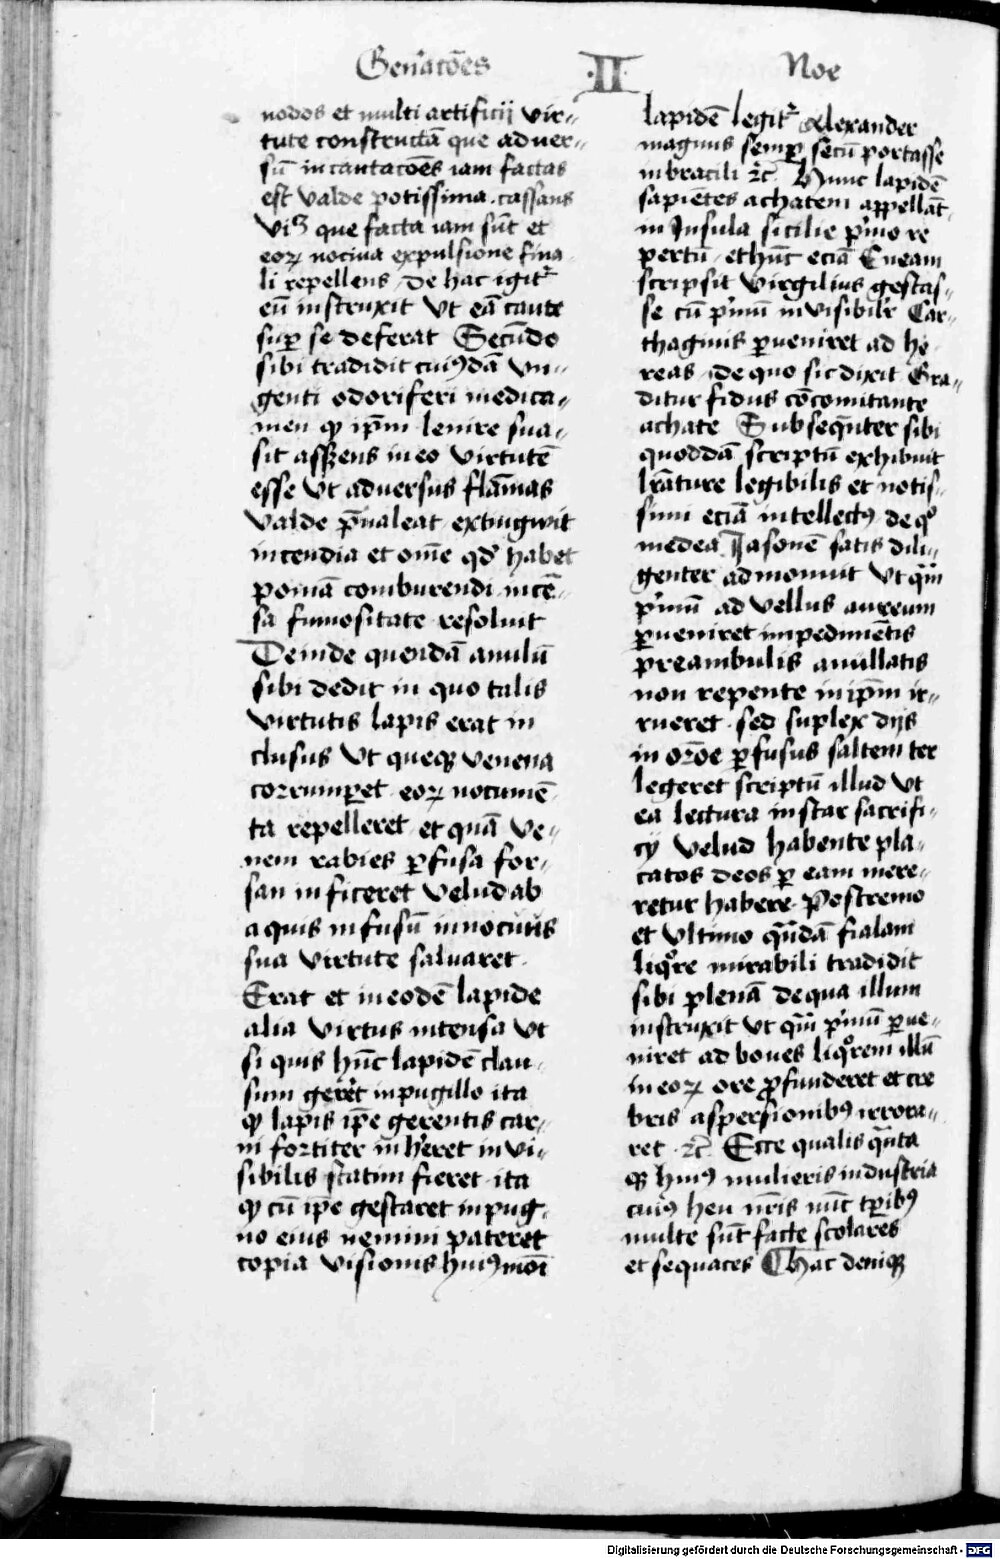 Gen̄acōes II Noe
nodos et multi artificij vir-
tute constructā que aduer-
sū incantacōes iam factas
est valde potissima cassans
viꝫ que facta iam sūt et
eoꝝ nociua expulsione fina
li repellens De hac igitᷣ
eū instruxit vt eā caute
suꝑ se deferat Secūdo
sibi tradidit cuiꝯdā vn-
genti odoriferi medica-
men ꝙ ip̄m lenire sua-
sit asserens in eo virtutē
esse vt aduersus flāmas
valde p̄ualeat extingwit
incendia et om̄e qd̕ habet
pomā comburendi incē-
sa fumositate resoluit
Deinde quendā anulū
sibi dedit in quo talis
virtutis lapis erat in
clusus vt queqꝫ venena
corrumꝑet eoꝝ nocumē
ta repelleret et quā ve-
nem rabies ꝑfusa for-
san inficeret velud ab
aquis infusū innocuūs
sua virtute saluaret
Erat et in eodē lapide
alia virtus intensa vt
si quis hūc lapidē clau-
sum geret̕ in pugillo ita
ꝙ lapis ip̄e gerentis car-
ni fortiter inh̕eret invi-
sibilis statim fieret ita
ꝙ cū ip̄e gestaret in pug-
no eius nemini pateret
copia visionis huiꝯmōi
lapidē legitᷣ Alexander
magnus semꝑ secū portasse
in bracili ⁊c̄ Hunc lapidē
sapiētes achatem appellāt
in Insula sicilie p̕mo re
pertū et hūc eciā Eneam
scripsit virgilius gestas-
se cū p̕mū invisibil̕r Car-
thaginis ꝑueniret ad he
reas de quo sic dixit Gra-
ditur fidus cōcomitante
achate Subseqūter sibi
quoddā scriptū exhibuit
lrāture legibilis et notis-
simi eciā intellectꝯ de qͦ
medea Jasonē satis dili-
genter admonuit vt qūm
p̕mū ad vellus aureum
ꝑueniret impedimētis
preambulis anullatis
non repente in ip̄m ir-
rueret sed suplex dijs
in orōe ꝑfusus saltem ter
legeret scriptū illud vt
ea lectura instar sacrifi-
cij velud habente pla-
catos deos ꝑ eam mere-
retur habere Postremo
et vltimo qūdā fialam
liqͦre mirabili tradidit
sibi plenā de qua illum
instruxit vt qūm p̕mū ꝑue-
niret ad boues liqͦrem illū
in eoꝝ ore ꝓfunderet et cre
bris aspersionibꝯ irrora-
ret ⁊c̄ Ecce qualis qūta
qꝫ huiꝯ mulieris industria
cuiꝯ heu nr̄is nūc tꝑibꝯ
multe sūt facte scolares
et sequaces Hac deniqꝫ
Digitalisierung gefördert durch die Deutsche Forschungsgemeinschaft - DFG